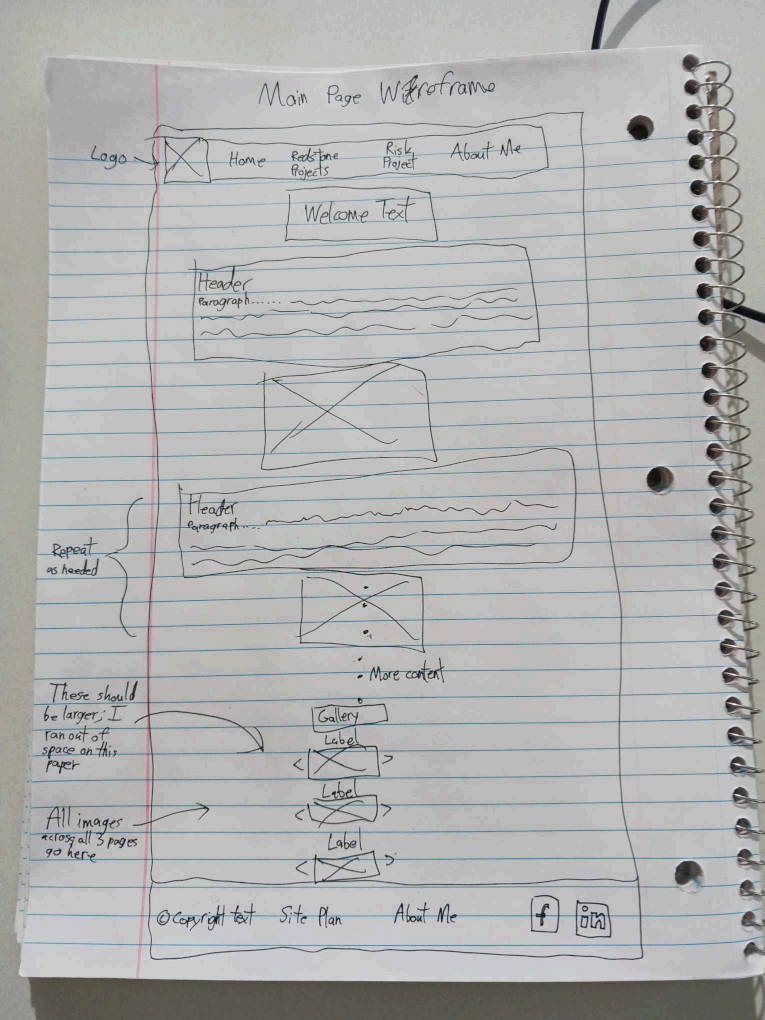 Main Page Wireframe
Logo
Home
Redstone
Projects
Risk
Project
About Me
Welcome Text
Header
Paragraph......
Header
Paragraph.....
Repeat
as needed
More content
These should
be larger; I
ran out of
space on this
paper
Gallery
Label
< >
Label
< >
All images
across all 3 pages
go here
Label
< >
© Copyright text Site Plan About Me f in